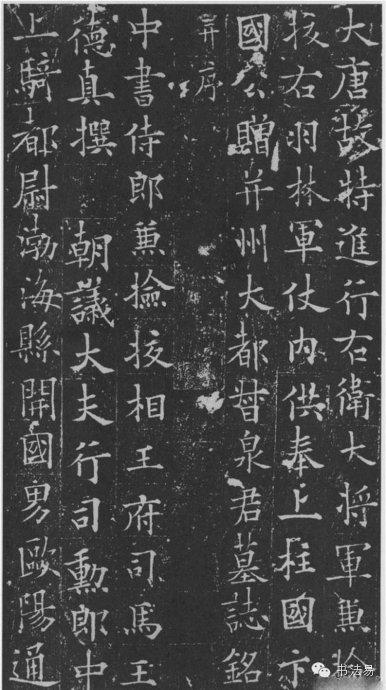 大唐故特進行右衛大將軍蒹撿
挍右羽林軍仗内供奉上柱國卞
國公贈并州大都督泉君墓誌銘
并序
中書侍郎蒹撿挍相王府司馬王
德真撰 朝議大夫行司勳郎中
上騎都尉渤海縣開國男歐陽通
书法易